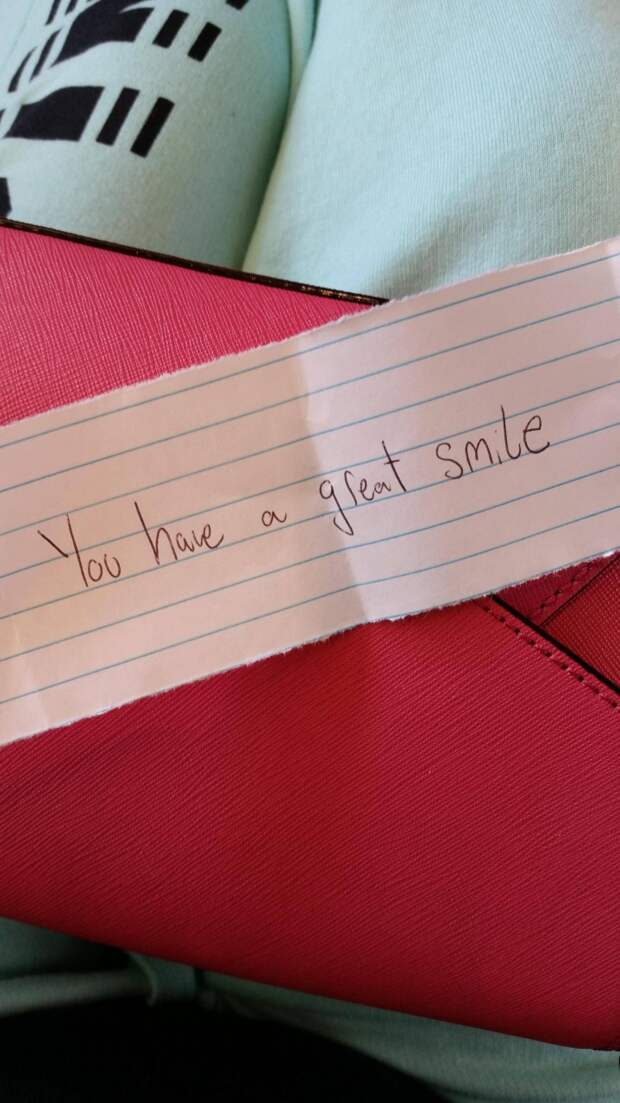 You have a great smile